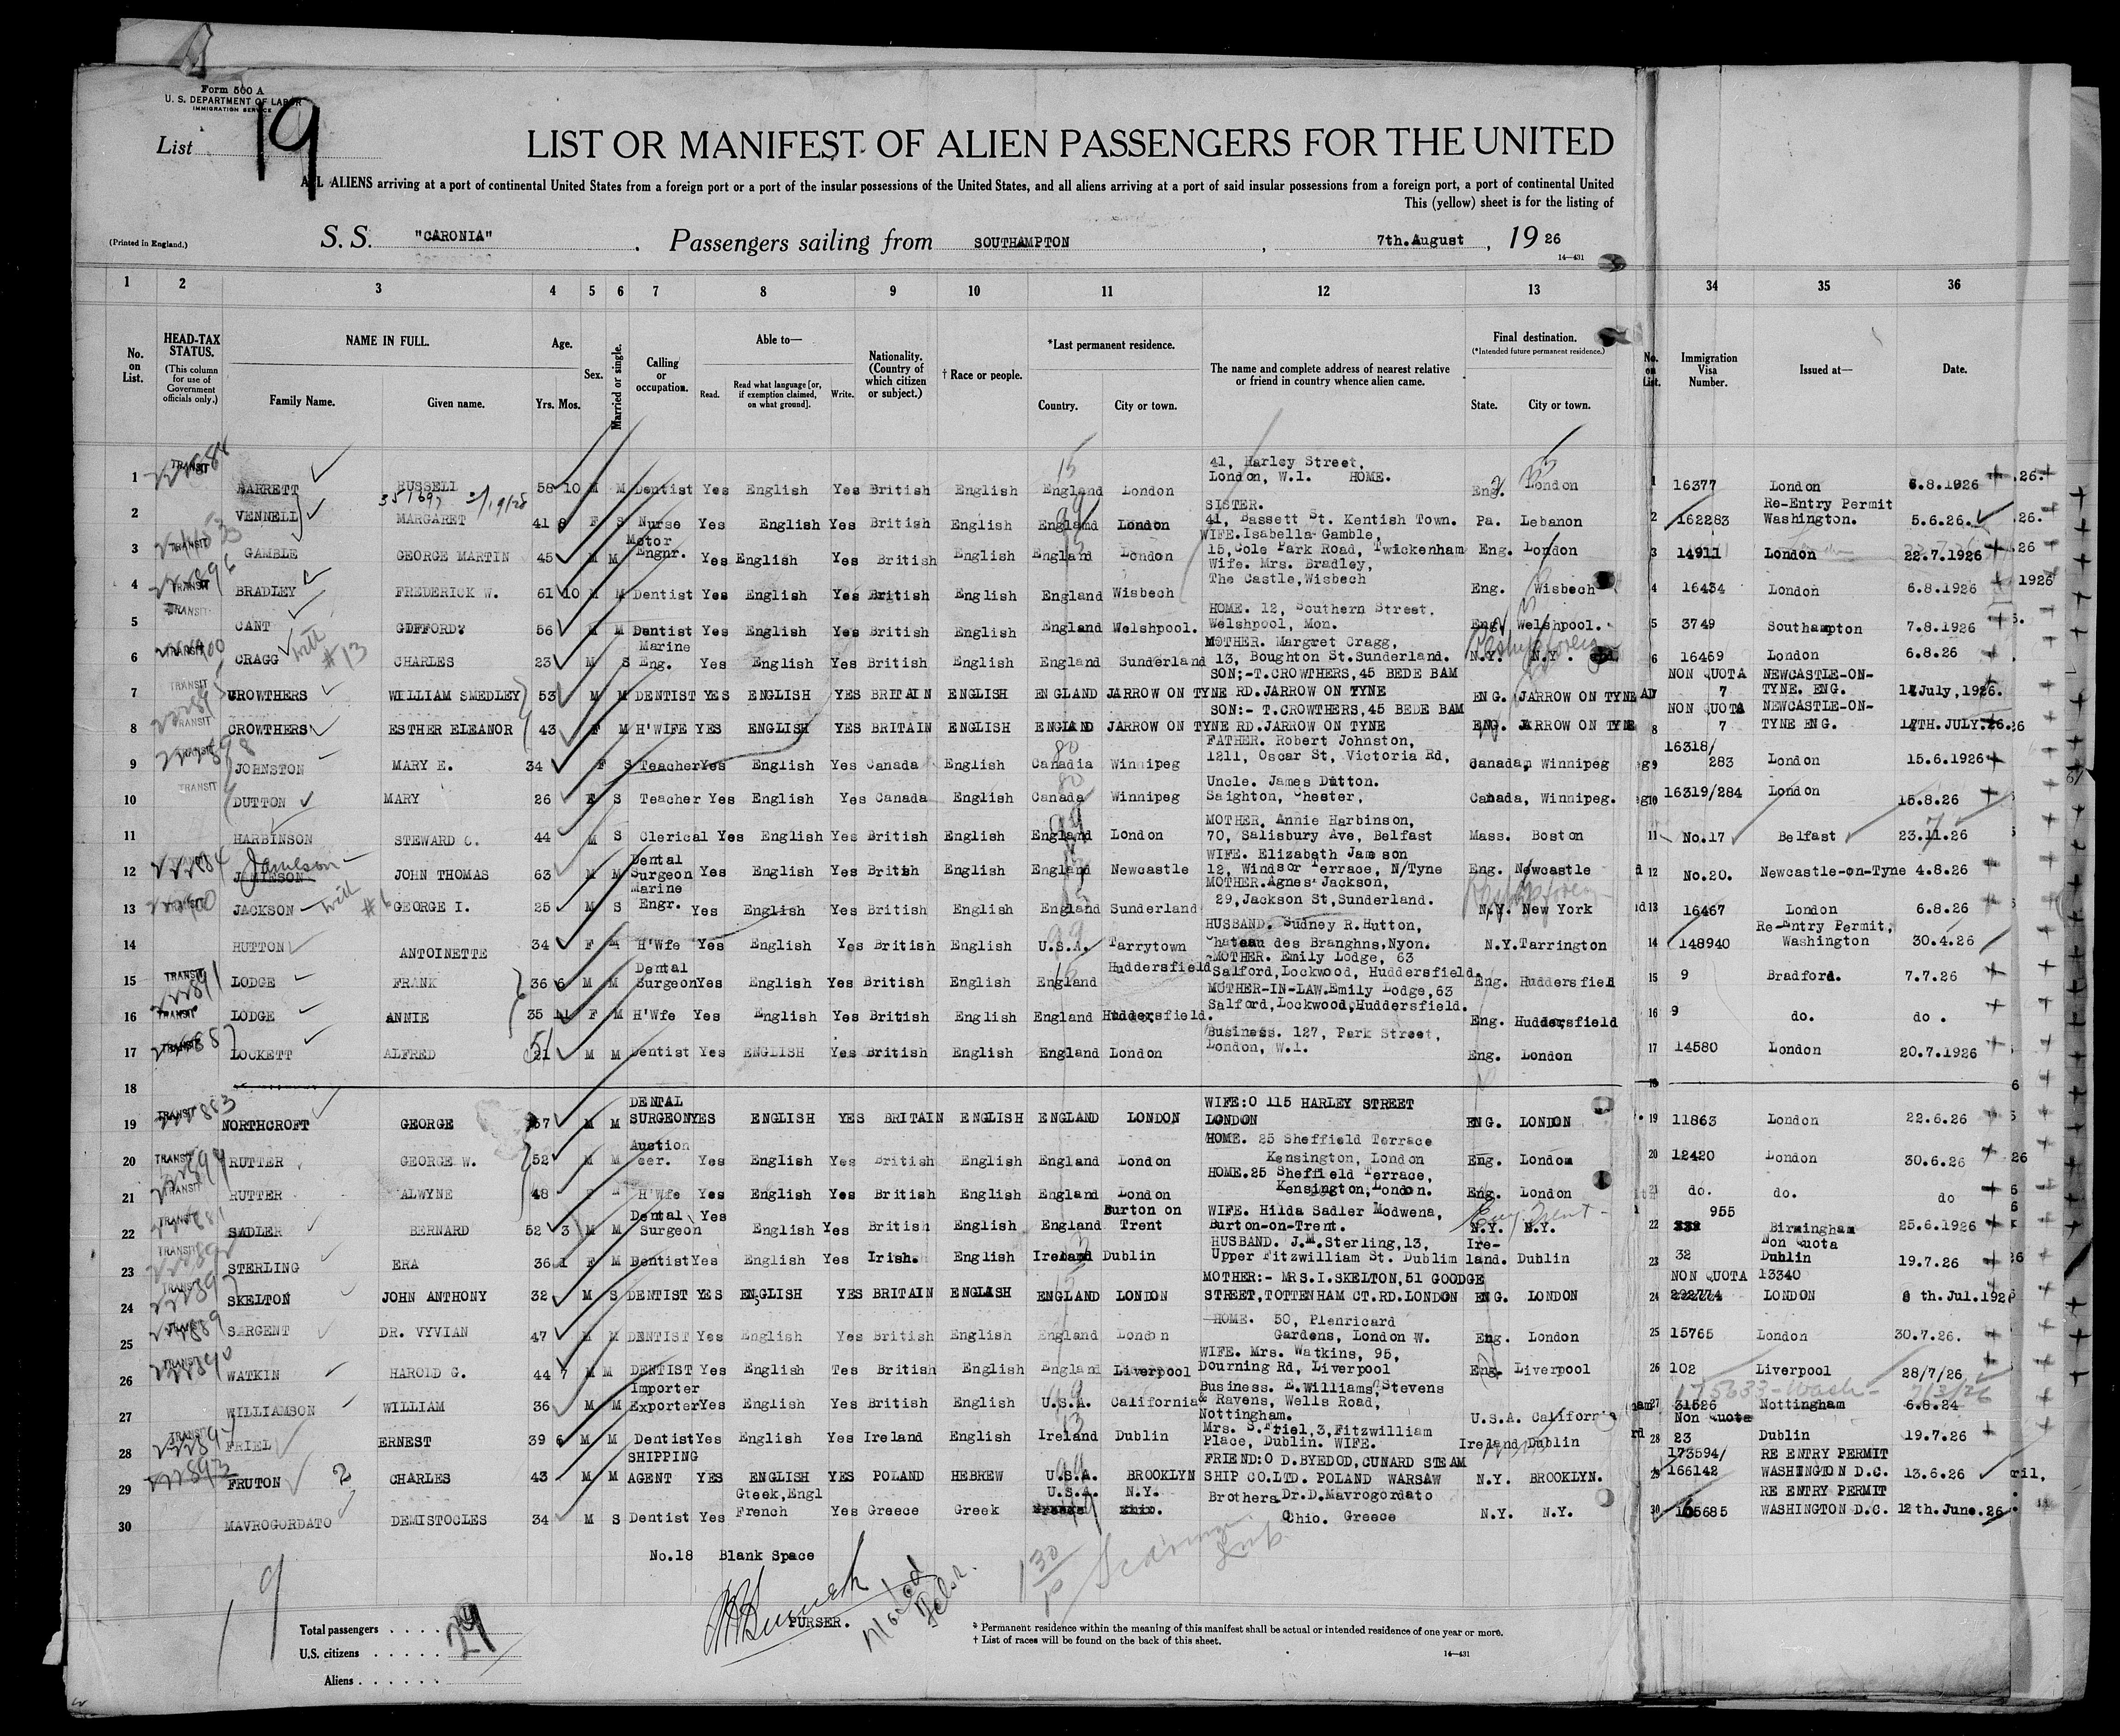 Form 500 A
U. S. DEPARTMENT OF LABOR
IMMIGRATION SERVICE
List 19
LIST OR MANIFEST OF ALIEN PASSENGERS FOR THE UNITED
ALL ALIENS arriving at a port of continental United States from a foreign port or a port of the insular possessions of the United States, and all aliens arriving at a port of said insular possessions from a foreign port, a port of continental United
This (yellow) sheet is for the listing of
(Printed in England.)
S. S. "CARONIA" . Passengers sailing from SOUTHAMPTON , 7th.August , 19 26
14—431
1 2 3 4 5 6 7 8 9 10 11 12 13 34 35 36
No. on List.
HEAD-TAX STATUS.
(This column for use of Government officials only.)
NAME IN FULL.
Family Name. Given name.
Age.
Yrs. Mos.
Sex.
Married or single.
Calling or occupation.
Able to—
Read. Read what language [or, if exemption claimed, on what ground]. Write.
Nationality. (Country of which citizen or subject.)
† Race or people.
*Last permanent residence.
Country. City or town.
The name and complete address of nearest relative or friend in country whence alien came.
Final destination.
(*Intended future permanent residence.)
State. City or town.
No. on List.
Immigration Visa Number.
Issued at—
Date.
1 TRANSIT BARRETT RUSSELL 58 10 M M Dentist Yes English Yes British English England London 41, Harley Street, London, W.1. HOME. Eng. London 1 16377 London 6.8.1926
2 VENNELL MARGARET 41 8 F S Nurse Yes English Yes British English England London SISTER. 41, Bassett St. Kentish Town. Pa. Lebanon 2 162283 Re-Entry Permit Washington. 5.6.26.
3 TRANSIT GAMBLE GEORGE MARTIN 45 M M Motor Engnr. Yes English Yes British English England London WIFE.Isabella Gamble, 15,Cole Park Road, Twickenham Eng. London 3 14911 London 22.7.1926
4 TRANSIT BRADLEY FREDERICK W. 61 10 M M Dentist Yes English Yes British English England Wisbech Wife. Mrs. Bradley, The Castle,Wisbech Eng. Wisbech 4 16434 London 6.8.1926
5 TRANSIT CANT GIFFORD 56 M M Dentist Yes English Yes British English England Welshpool. HOME. 12, Southern Street, Welshpool, Mon. Eng. Welshpool. 5 3749 Southampton 7.8.1926
6 TRANSIT CRAGG with #13 CHARLES 23 M S Marine Eng. Yes English Yes British English England Sunderland MOTHER. Margret Cragg, 13, Boughton St.Sunderland. N.Y. N.Y. 6 16459 London 6.8.26
7 TRANSIT CROWTHERS WILLIAM SMEDLEY 53 M M DENTIST YES ENGLISH YES BRITAIN ENGLISH ENGLAND JARROW ON TYNE SON:-T.CROWTHERS,45 BEDE BAM RD.JARROW ON TYNE ENG. JARROW ON TYNE NON QUOTA 7 NEWCASTLE-ON-TYNE. ENG. 17July,1926.
8 TRANSIT CROWTHERS ESTHER ELEANOR 43 F M H'WIFE YES ENGLISH YES BRITAIN ENGLISH ENGLAND JARROW ON TYNE SON:- T.CROWTHERS,45 BEDE BAM RD.JARROW ON TYNE ENG. JARROW ON TYNE 8 NON QUOTA 7 NEWCASTLE-ON-TYNE ENG. 17TH.JULY.26
9 TRANSIT JOHNSTON MARY E. 34 F S Teacher Yes English Yes Canada English Canadia Winnipeg FATHER. Robert Johnston, 1211, Oscar St, Victoria Rd, Canada, Winnipeg 9 16318/283 London 15.6.1926
10 TRANSIT DUTTON MARY 26 F S Teacher Yes English Yes Canada English Canada Winnipeg Uncle. James Dutton. Saighton, Chester, Canada, Winnipeg. 10 16319/284 London 15.8.26
11 HARBINSON STEWARD C. 44 M S Clerical Yes English Yes British English England London MOTHER, Annie Harbinson, 70, Salisbury Ave, Belfast Mass. Boston 11 No.17 Belfast 23.11.26
12 Jamieson JOHN THOMAS 63 M M Dental Surgeon Yes English Yes British English England Newcastle WIFE. Elizabeth Jameson 12, Windsor Terrace, N/Tyne Eng. Newcastle 12 No.20. Newcastle-on-Tyne 4.8.26
13 JACKSON with #6 GEORGE I. 25 M S Marine Engr. Yes English Yes British English England Sunderland MOTHER.Agnes Jackson, 29,Jackson St,Sunderland. N.Y. New York 13 16467 London 6.8.26
14 HUTTON ANTOINETTE 34 F M H'Wfe Yes English Yes British English U.S.A. Tarrytown HUSBAND. Sudney R.Hutton, Chateau des Branghns,Nyon. N.Y. Tarrington 14 148940 Re-Entry Permit, Washington 30.4.26
15 TRANSIT LODGE FRANK 36 6 M M Dental Surgeon Yes English Yes British English England Huddersfield MOTHER. Emily Lodge, 63 Salford,Lockwood, Huddersfield. Eng. Huddersfield 15 9 Bradford. 7.7.26
16 TRANSIT LODGE ANNIE 35 11 F M H'Wfe Yes English Yes British English England Huddersfield. MOTHER-IN-LAW.Emily Lodge,63 Salford,Lockwood,Huddersfield. Eng. Huddersfield 16 9 do. do.
17 TRANSIT LOCKETT ALFRED 51 M M Dentist Yes ENGLISH Yes British English England London Business. 127, Park Street, London, W.1. Eng. London 17 14580 London 20.7.1926
18
19 TRANSIT NORTHCROFT GEORGE 57 M M DENTAL SURGEON YES ENGLISH YES BRITAIN ENGLISH ENGLAND LONDON WIFE:O 115 HARLEY STREET LONDON ENG. LONDON 19 11863 London 22.6.26
20 TRANSIT RUTTER GEORGE W. 52 M M Auction eer. Yes English Yes British English England London HOME. 25 Sheffield Terrace Kensington, London Eng. London 20 12420 London 30.6.26
21 TRANSIT RUTTER ALWYNE 48 F M H'Wfe Yes English Yes British English England London HOME.25 Sheffield Terrace, Kensington,London. Eng. London 21 do. do. do
22 TRANSIT SADLER BERNARD 52 3 M M Dental Surgeon Yes English Yes British English England Burton on Trent WIFE. Hilda Sadler Modwena, Burton-on-Trent. N.Y. N.Y. Eng. Trent 22 955 Birmingham 25.6.1926
23 TRANSIT STERLING ERA 36 1 F M Dentist Yes English Yes Irish. English Ireland Dublin HUSBAND. J.M.Sterling,13, Upper Fitzwilliam St. Dublim Ire-land. Dublin 23 32 Non Quota Dublin 19.7.26
24 TRANSIT SKELTON JOHN ANTHONY 32 M S DENTIST YES ENGLISH YES BRITAIN ENGLISH ENGLAND LONDON MOTHER:- MRS.I.SKELTON,51 GOODGE STREET,TOTTENHAM CT.RD.LONDON ENG. LONDON 24 NON QUOTA 13340 292774 LONDON 8 th.Jul.192
25 TRANSIT SARGENT DR. VYVIAN 47 M M DENTIST Yes English Yes British English England London HOME. 50, Plenricard Gardens, London W. Eng. London 25 15765 London 30.7.26.
26 TRANSIT WATKIN HAROLD G. 44 7 M M DENTIST Yes English Tes British English England Liverpool WIFE. Mrs. Watkins, 95, Dourning Rd, Liverpool Eng. Liverpool 26 102 Liverpool 28/7/26
27 WILLIAMSON WILLIAM 36 M M Importer Exporter Yes English Yes British English U.S.A. California Business. E.Williams, Stevens & Ravens, Wells Road, Nottingham. U.S.A. California 27 175633-Wash- 31526 Nottingham 6.8.24
28 TRANSIT FRIEL ERNEST 39 6 M M Dentist Yes English Yes Ireland English Ireland Dublin Mrs. S.Friel,3,Fitzwilliam Place, Dublin. WIFE. Ireland Dublin 28 Non Quota 23 Dublin 19.7.26
29 FRUTON 2 CHARLES 43 M M SHIPPING AGENT YES ENGLISH YES POLAND HEBREW U.S.A. BROOKLYN FRIEND:O D.BYEDOD,CUNARD STEAM SHIP CO.LTD. POLAND WARSAW N.Y. BROOKLYN. 29 173594/ 166142 RE ENTRY PERMIT WASHINGTON D.C. 13.6.26
30 MAVROGORDATO DEMISTOCLES 34 M S Dentist Yes Gteek,Engl French Yes Greece Greek U.S.A. N.Y. Brothers Dr.D.Mavrogordato Chio. Greece N.Y. N.Y. 30 165685 RE ENTRY PERMIT WASHINGTON D.C. 12th.June.26
No.18 Blank Space
PURSER.
19
Total passengers . . . . 29
U.S. citizens . . . . .
Aliens . . . . . .
* Permanent residence within the meaning of this manifest shall be actual or intended residence of one year or more.
† List of races will be found on the back of this sheet.
14—431